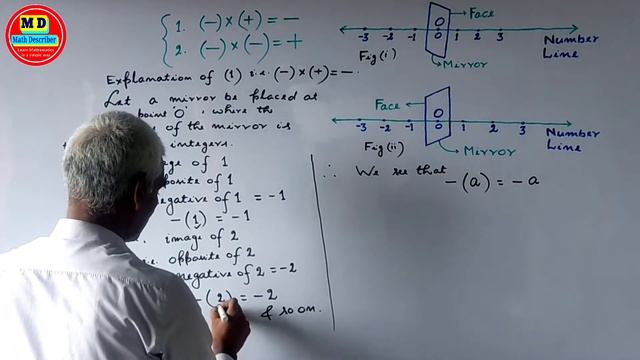 M D
Math Describer
Learn Mathematics
in a simple way
1. (−) × (+) = −
2. (−) × (−) = +
Explanation of (1) i.e. (−) × (+) = −.
Let a mirror be placed at
point 'O', where the
of the mirror is
integers.
image of 1
opposite of 1
negative of 1 = −1
−(1) = −1
image of 2
i.e. opposite of 2
negative of 2 = −2
−(2) = −2
& so on.
Face
O
-3 -2 -1 0 1 2 3
Fig(i)
Mirror
Number
Line
Face
O
-3 -2 -1 0 1 2 3
Fig(ii)
Mirror
Number
Line
∴ We see that
−(a) = −a